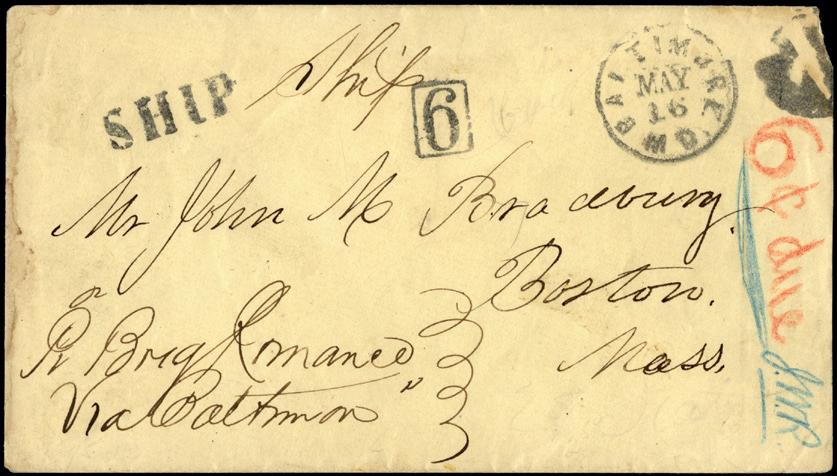 Ship
SHIP
6
BALTIMORE MD
MAY
16
Mr John M Bradbury.
Boston.
Mass.
Pr Brig Romance
Via Baltimore"
6¢ due